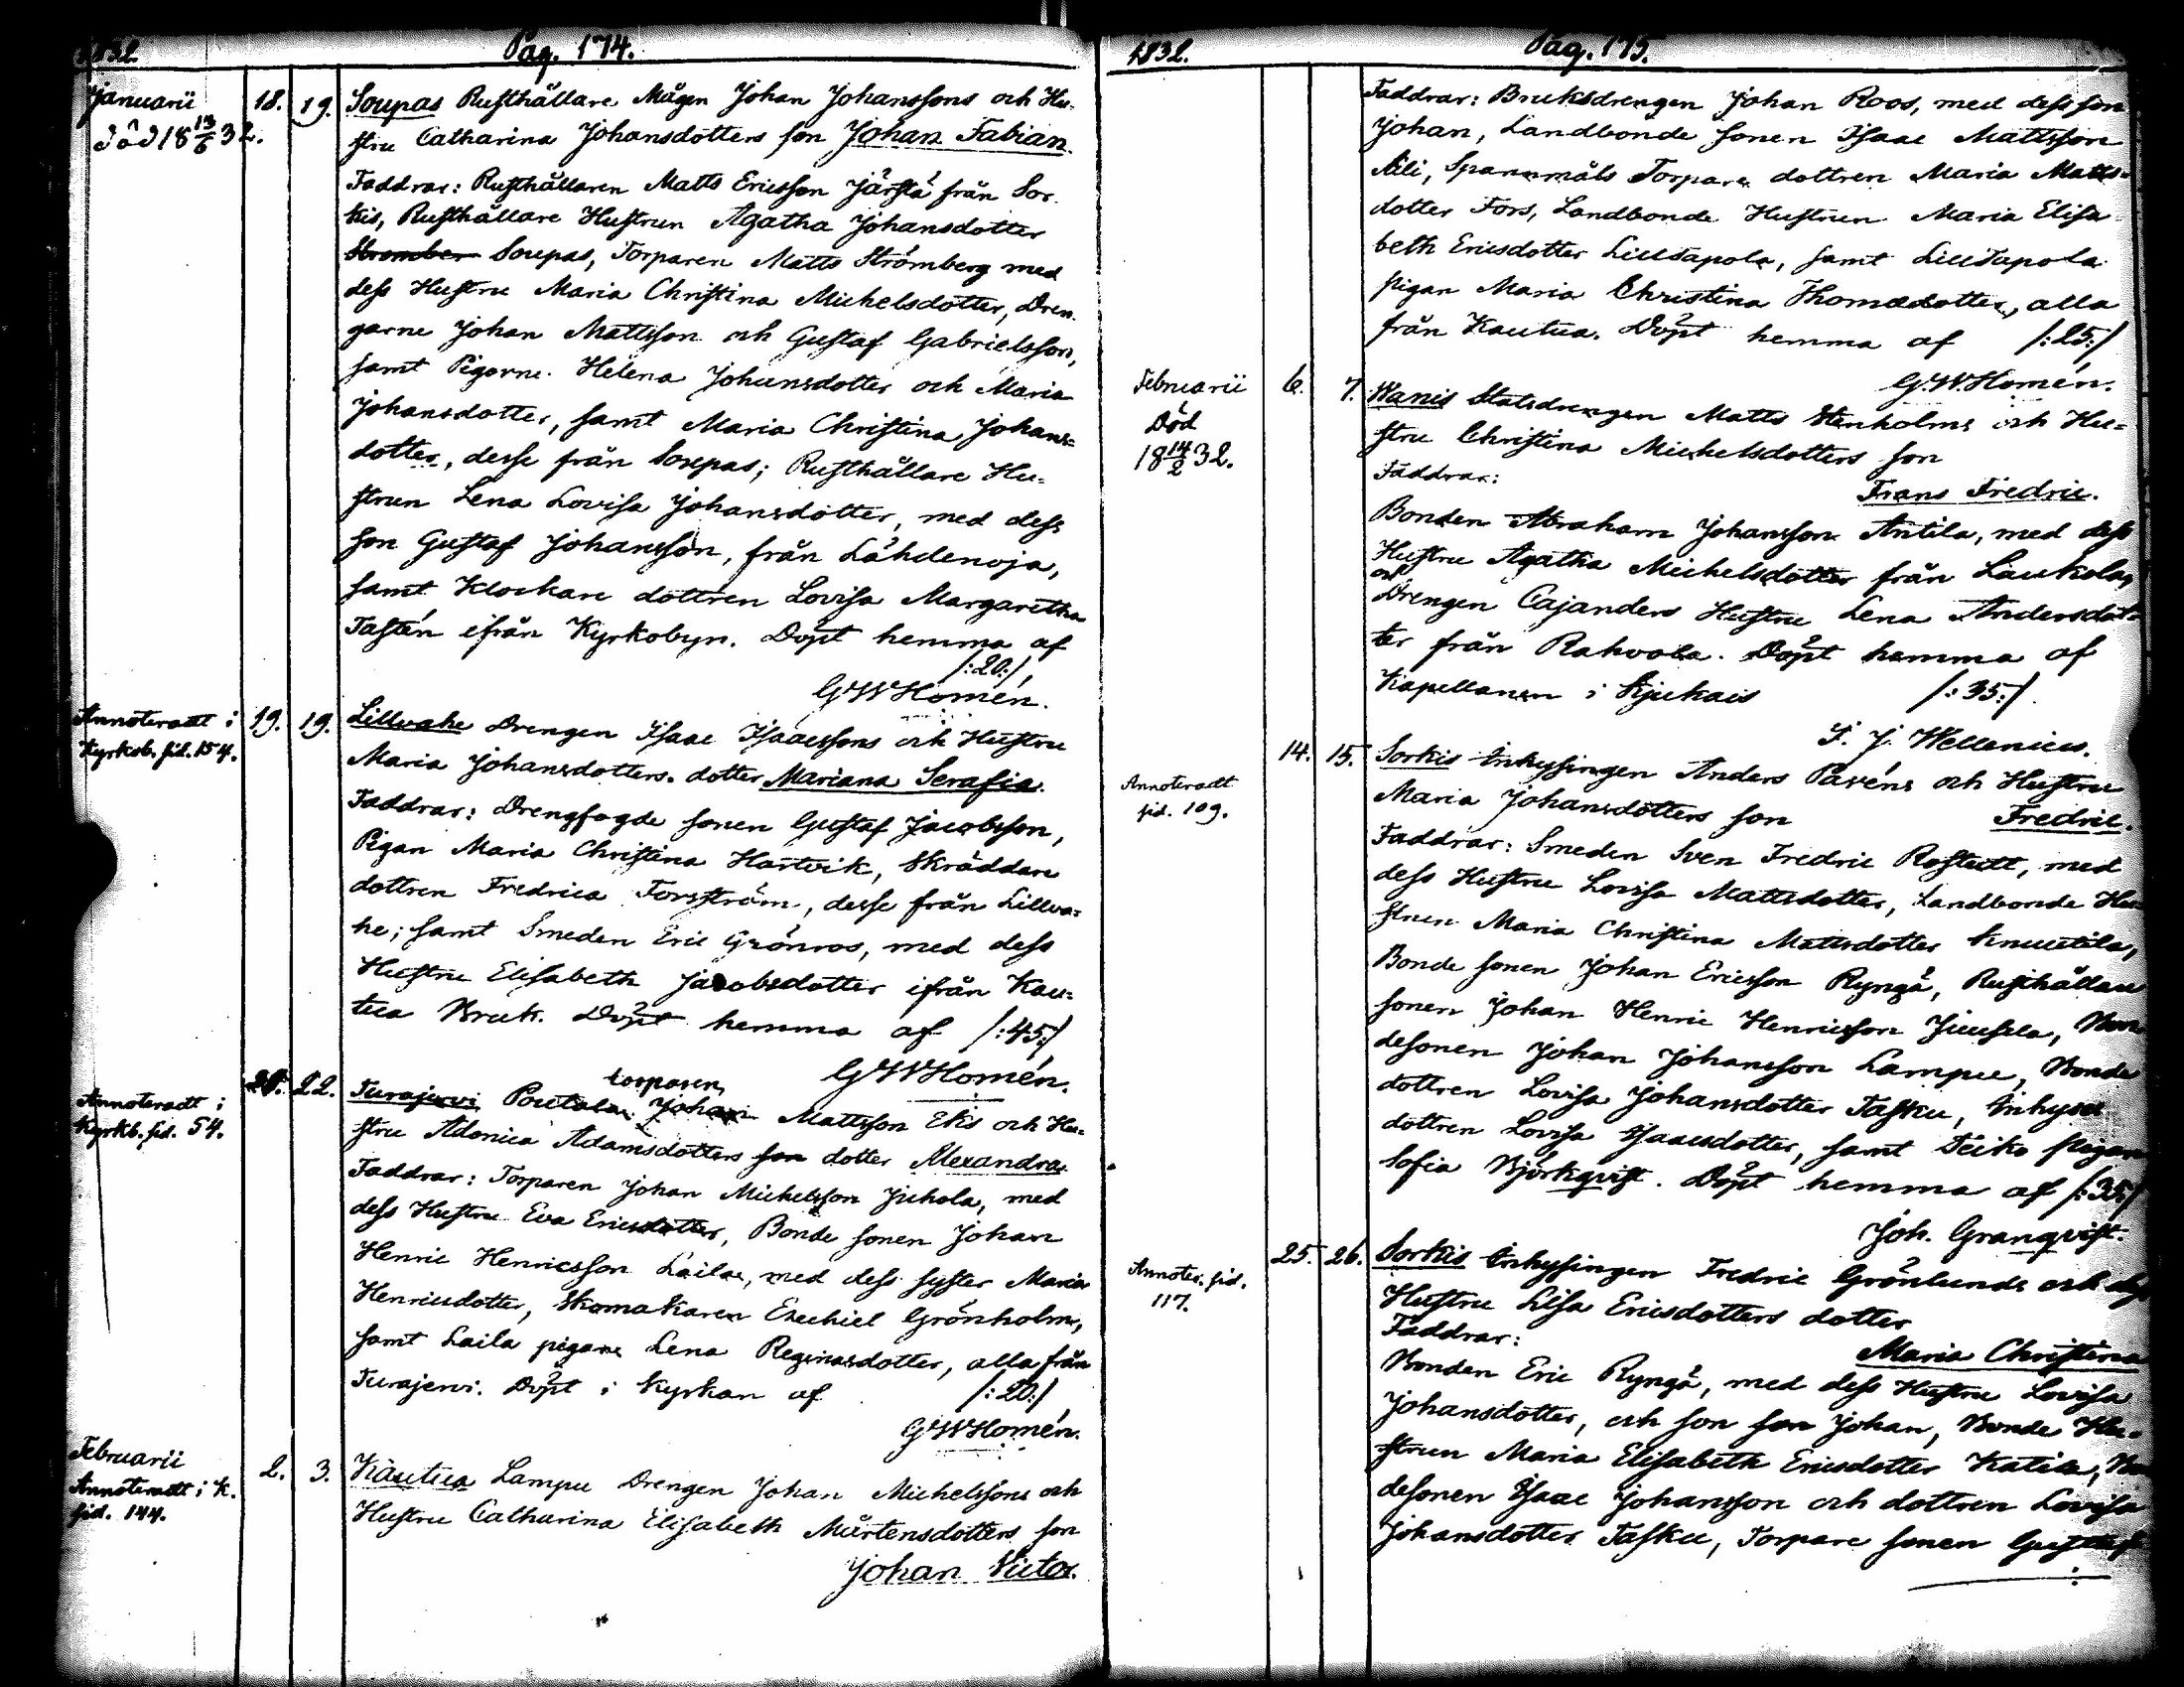 1832.
Pag. 174.
Januarii
död 18 13/6 32.
18. 19. Soupas Rusthållare Mågen Johan Johanssons och Hu-
stru Catharina Johansdotters son Johan Fabian.
Faddrar: Rusthållaren Matts Ericsson Järstä från Sor-
kis, Rusthållare Hustrun Agatha Johansdotter
Strömber Soupas, Torparen Matts Strömberg med
dess Hustru Maria Christina Michelsdotter, Dren-
garne Johan Mattsson och Gustaf Gabrielsson,
samt Pigorne Helena Johansdotter och Maria
Johansdotter, samt Maria Christina Johans-
dotter, desse från Soupas; Rusthållare Hu-
strun Lena Lovisa Johansdotter, med dess
son Gustaf Johansson, från Lähdenoja,
samt Klockare dottren Lovisa Margaretha
Tastén ifrån Kyrkobyn. Döpt hemma af
/:20:/
GWHomén.
Annoteradt i
Kyrkob. sid. 154.
19. 19. Lillvahe Drengen Isaac Isaacssons och Hustru
Maria Johansdotters dotter Mariana Serafia.
Faddrar: Drengfogde sonen Gustaf Jacobsson,
Pigan Maria Christina Hartvik, Skräddare
dottren Fredrica Forsström, desse från Lillva-
he; samt Smeden Eric Grönros, med dess
Hustru Elisabeth Jacobsdotter ifrån Kau-
tua Bruk. Döpt hemma af /:45:/
GWHomén.
Annoteradt i
Kyrkb. sid. 54.
22. Turajervi Poutala torparen Johan Mattsson Eks och Hu-
stru Adonica Adamsdotters son dotter Alexandra.
Faddrar: Torparen Johan Michelsson Juhola, med
dess Hustru Eva Ericsdotter, Bonde sonen Johan
Henric Henricsson Laila, med dess syster Maria
Henricsdotter, Skomakaren Ezechiel Grönholm,
samt Laila pigan Lena Reginasdotter, alla från
Turajervi. Döpt i kyrkan af /:20:/
GWHomén.
Februarii
Annoteradt i K.
sid. 144.
2. 3. Kautua Lampu Drengen Johan Michelssons och
Hustru Catharina Elisabeth Mårtensdotters son
Johan Victor.
1832.
Pag. 175.
Faddrar: Bruksdrengen Johan Roos, med dess son
Johan, Landbonde sonen Isaac Mattsson
Aili, Spanmåls Torpare dottren Maria Matts-
dotter Fors, Landbonde Hustrun Maria Elisa-
beth Ericsdotter Lillsapola, samt Lillsapola
pigan Maria Christina Thomædotter, alla
från Kautua. Döpt hemma af /:25:/
G.W.Homén.
Februarii
Död
18 14/2 32.
6. 7. Wanis Statsdrengen Matts Stenholms och Hu-
stru Christina Michelsdotters son
Faddrar:
Frans Fredric.
Bonden Abraham Johansson Antila, med dess
Hustru Agatha Michelsdotter från Laukola,
och Drengen Cajanders Hustru Lena Andersdot-
ter från Rahvola. Döpt hemma af
Kapellanen i Kjukais /:35:/
S. J. Wellenius.
Annoteradt
sid. 109.
14. 15. Sorkis Inhysingen Anders Pavéns och Hustru
Maria Johansdotters son Fredric.
Faddrar: Smeden Sven Fredric Rostedt, med
dess Hustru Lovisa Mattsdotter, Landbonde Hu-
strun Maria Christina Mattsdotter Knuutila,
Bonde sonen Johan Ericsson Ryngä, Rusthållare
sonen Johan Henric Henricsson Juusela, Bon-
desonen Johan Johansson Lampu, Bonde
dottren Lovisa Johansdotter Tasku, Inhyses
dottren Lovisa Isaacsdotter, samt Teiko pigan
Sofia Björkqvist. Döpt hemma af /:35:/
Joh. Granqvist.
Annoter. sid.
117.
25. 26. Sorkis Inhysingen Fredric Grönlunds och dess
Hustru Lisa Ericsdotters dotter
Faddrar:
Maria Christina
Bonden Eric Ryngä, med dess Hustru Lovisa
Johansdotter, och son son Johan, Bonde Hu-
strun Maria Elisabeth Ericsdotter Katila, Bon
desonen Isaac Johansson och dottren Lovisa
Johansdotter Tasku, Torpare sonen Gustaf